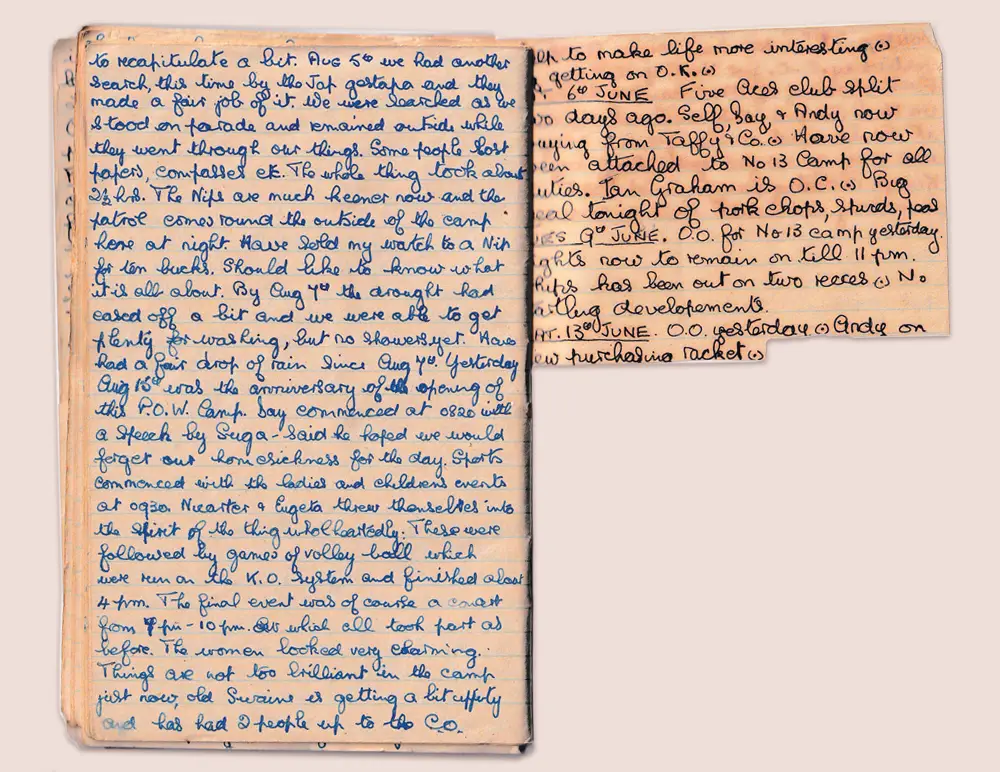 to recapitulate a bit. Aug 5th we had another
search, this time by the Jap gestapo and they
made a fair job of it. We were searched as we
stood on parade and remained outside while
they went through our things. Some people lost
papers, compasses etc. The whole thing took about
2½ hrs. The Nips are much keener now and the
patrol comes round the outside of the camp
here at night. Have sold my watch to a Nip
for ten bucks. Should like to know what
it is all about. By Aug 7th the drought had
eased off a bit and we were able to get
plenty for washing, but no showers yet. Have
had a fair drop of rain since Aug 7th. Yesterday
Aug 15th was the anniversary of the opening of
this P.O.W. Camp. Day commenced at 0820 with
a speech by Suga - said he hoped we would
forget our homesickness for the day. Sports
commenced with the ladies and childrens events
at 0930. & threw themselves into
the spirit of the thing wholheartedly. These were
followed by games of volley ball which
were run on the K.O. system and finished about
4 pm. The final event was of course a concert
from 7 pm - 10 pm. which all took part as
before. The women looked very charming.
Things are not too brilliant in the camp
just now, old Swaine is getting a bit uppity
and has had 2 people up to the C.O.
to make life more interesting (.)
getting on O.K. (.)
6th JUNE Five Aces club split
days ago. Self, Gay, & Andy now
from Taffy & Co. Have now
een attached to No 13 Camp for all
uties. Ian Graham is O.C. (.) Big
eal tonight of pork chops, spuds, peas
ES 9th JUNE. O.O. for No 13 camp yesterday.
ghts now to remain on till 11 pm.
hips has been out on two recces (.) No
artling developements.
AT. 13th JUNE. O.O. yesterday (.) Andy on
ew purchasing racket (.)